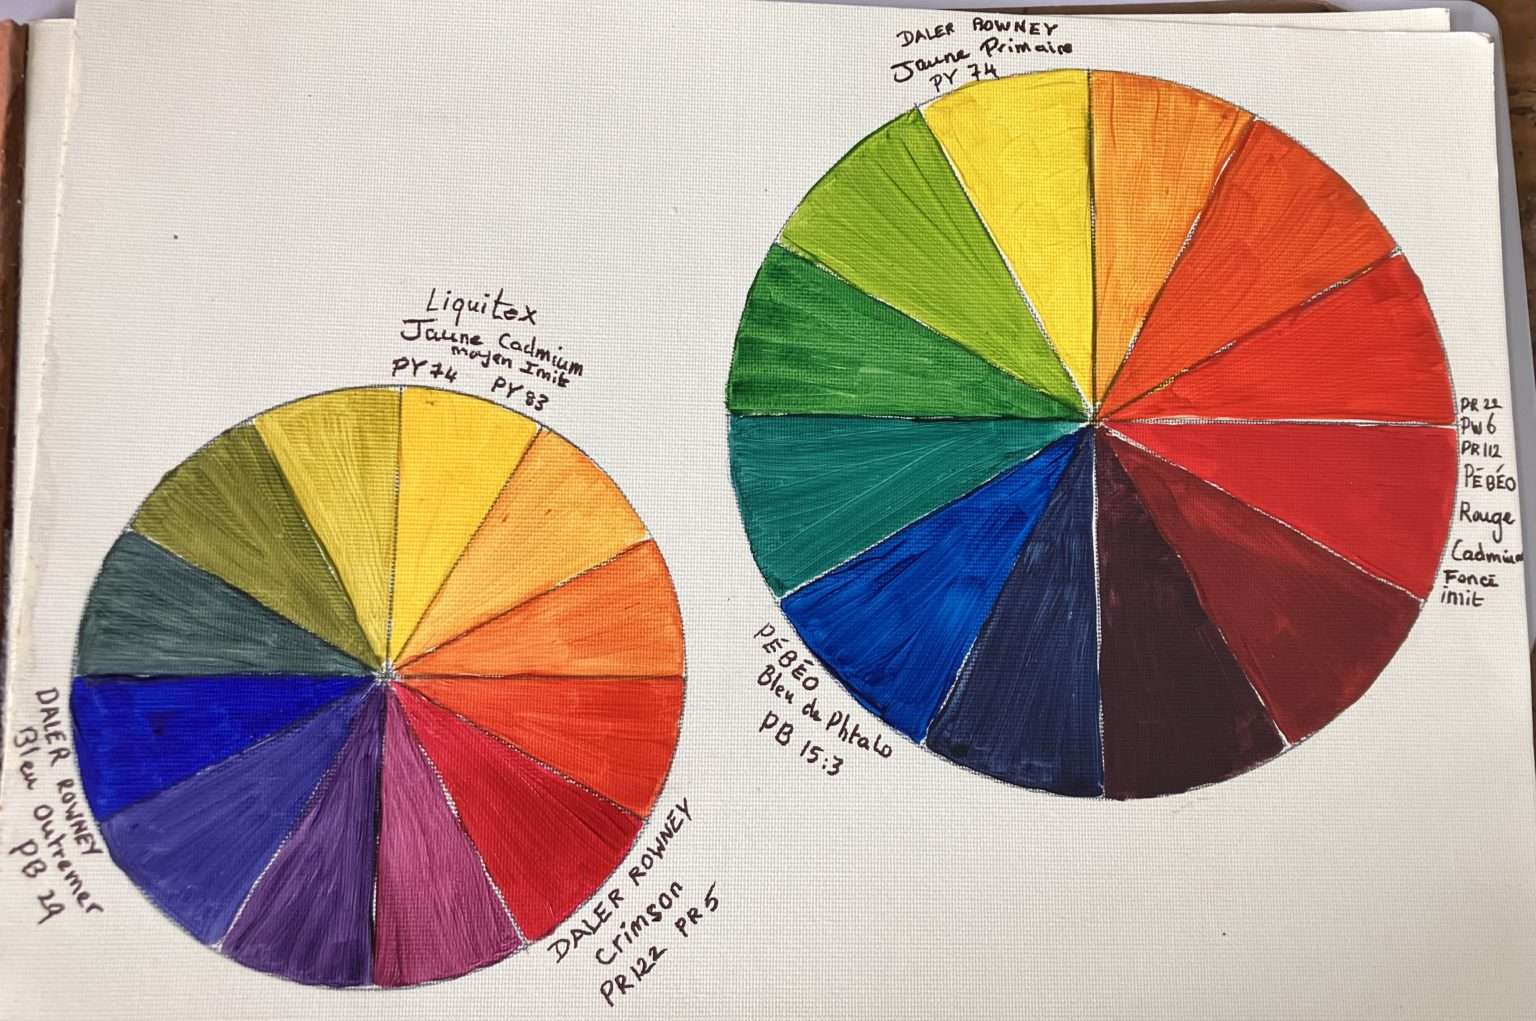 DALER ROWNEY
Jaune Primaire
PY 74
Liquitex
Jaune Cadmium
moyen Imit
PY 74 PY 83
PR 22
PW6
PR112
PÉBÉO
Rouge
Cadmium
Foncé
imit
PÉBÉO
Bleu de Phtalo
PB 15:3
DALER ROWNEY
Bleu Outremer
PB 29
DALER ROWNEY
Crimson
PR122 PR5